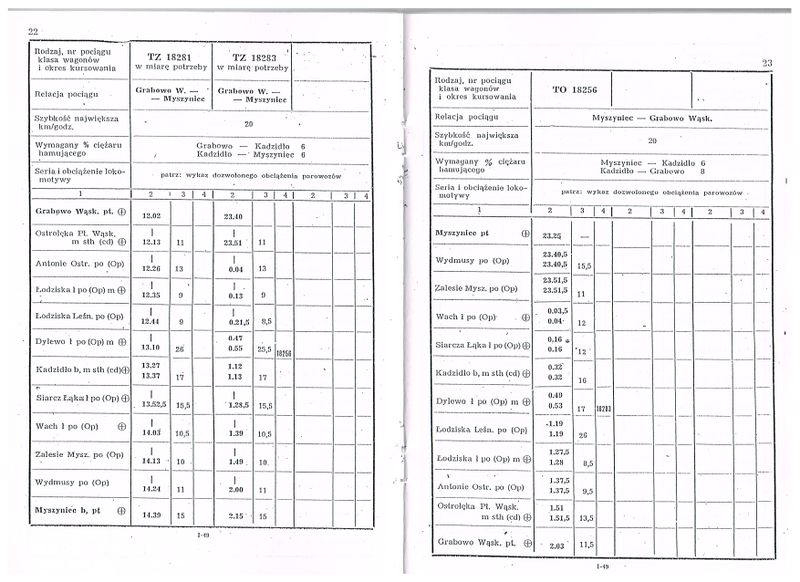 22
Rodzaj, nr pociągu
klasa wagonów
i okres kursowania
TZ 18281
w miarę potrzeby
TZ 18283
w miarę potrzeby
Relacja pociągu
Grabowo W. —
— Myszyniec
Grabowo W. —
— Myszyniec
Szybkość największa
km/godz.
20
Wymagany % ciężaru
hamującego
Grabowo — Kadzidło 6
Kadzidło — Myszyniec 6
Seria i obciążenie loko-
motywy
patrz: wykaz dozwolonego obciążenia parowozów
1 2 3 4 2 3 4 2 3 4
Grabowo Wąsk. pt. ⊕ 12.02 23.40
Ostrołęka Pl. Wąsk. | |
m sth (cd) ⊕ 12.13 11 23.51 11
Antonie Ostr. po (Op) | 12.26 13 | 0.04 13
Łodziska ł po (Op) m ⊕ | 12.35 9 | 0.13 9
Łodziska Leśn. po (Op) | 12.44 9 | 0.21,5 8,5
Dylewo ł po (Op) m ⊕ | 13.10 26 0.47 0.55 25,5 18256
Kadzidło b, m sth (cd) ⊕ 13.27 13.37 17 1.12 1.13 17
Siarcz Łąka ł po (Op) ⊕ | 13.52,5 15,5 | 1.28,5 15,5
Wach ł po (Op) ⊕ | 14.03 10,5 | 1.39 10,5
Zalesie Mysz. po (Op) | 14.13 10 | 1.49 10
Wydmusy po (Op) | 14.24 11 | 2.00 11
Myszyniec b, pt ⊕ 14.39 15 2.15 15
I-49
23
Rodzaj, nr pociągu
klasa wagonów
i okres kursowania
TO 18256
Relacja pociągu
Myszyniec — Grabowo Wąsk.
Szybkość największa
km/godz.
20
Wymagany % ciężaru
hamującego
Myszyniec — Kadzidło 6
Kadzidło — Grabowo 8
Seria i obciążenie loko-
motywy
patrz: wykaz dozwolonego obciążenia parowozów
1 2 3 4 2 3 4 2 3 4
Myszyniec pt ⊕ 23.25 —
Wydmusy po (Op) 23.40,5 23.40,5 15,5
Zalesie Mysz. po (Op) 23.51,5 23.51,5 11
Wach ł po (Op) ⊕ 0.03,5 0.04 12
Siarcza Łąka ł po (Op) ⊕ 0.16 0.16 12
Kadzidło b, m sth (cd) ⊕ 0.32 0.32 16
Dylewo ł po (Op) m ⊕ 0.49 0.53 17 18283
Łodziska Leśn. po (Op) 1.19 1.19 26
Łodziska ł po (Op) m ⊕ 1.27,5 1.28 8,5
Antonie Ostr. po (Op) 1.37,5 1.37,5 9,5
Ostrołęka Pl. Wąsk. 1.51
m sth (cd) ⊕ 1.51,5 13,5
Grabowo Wąsk. pt. ⊕ 2.03 11,5
I-49